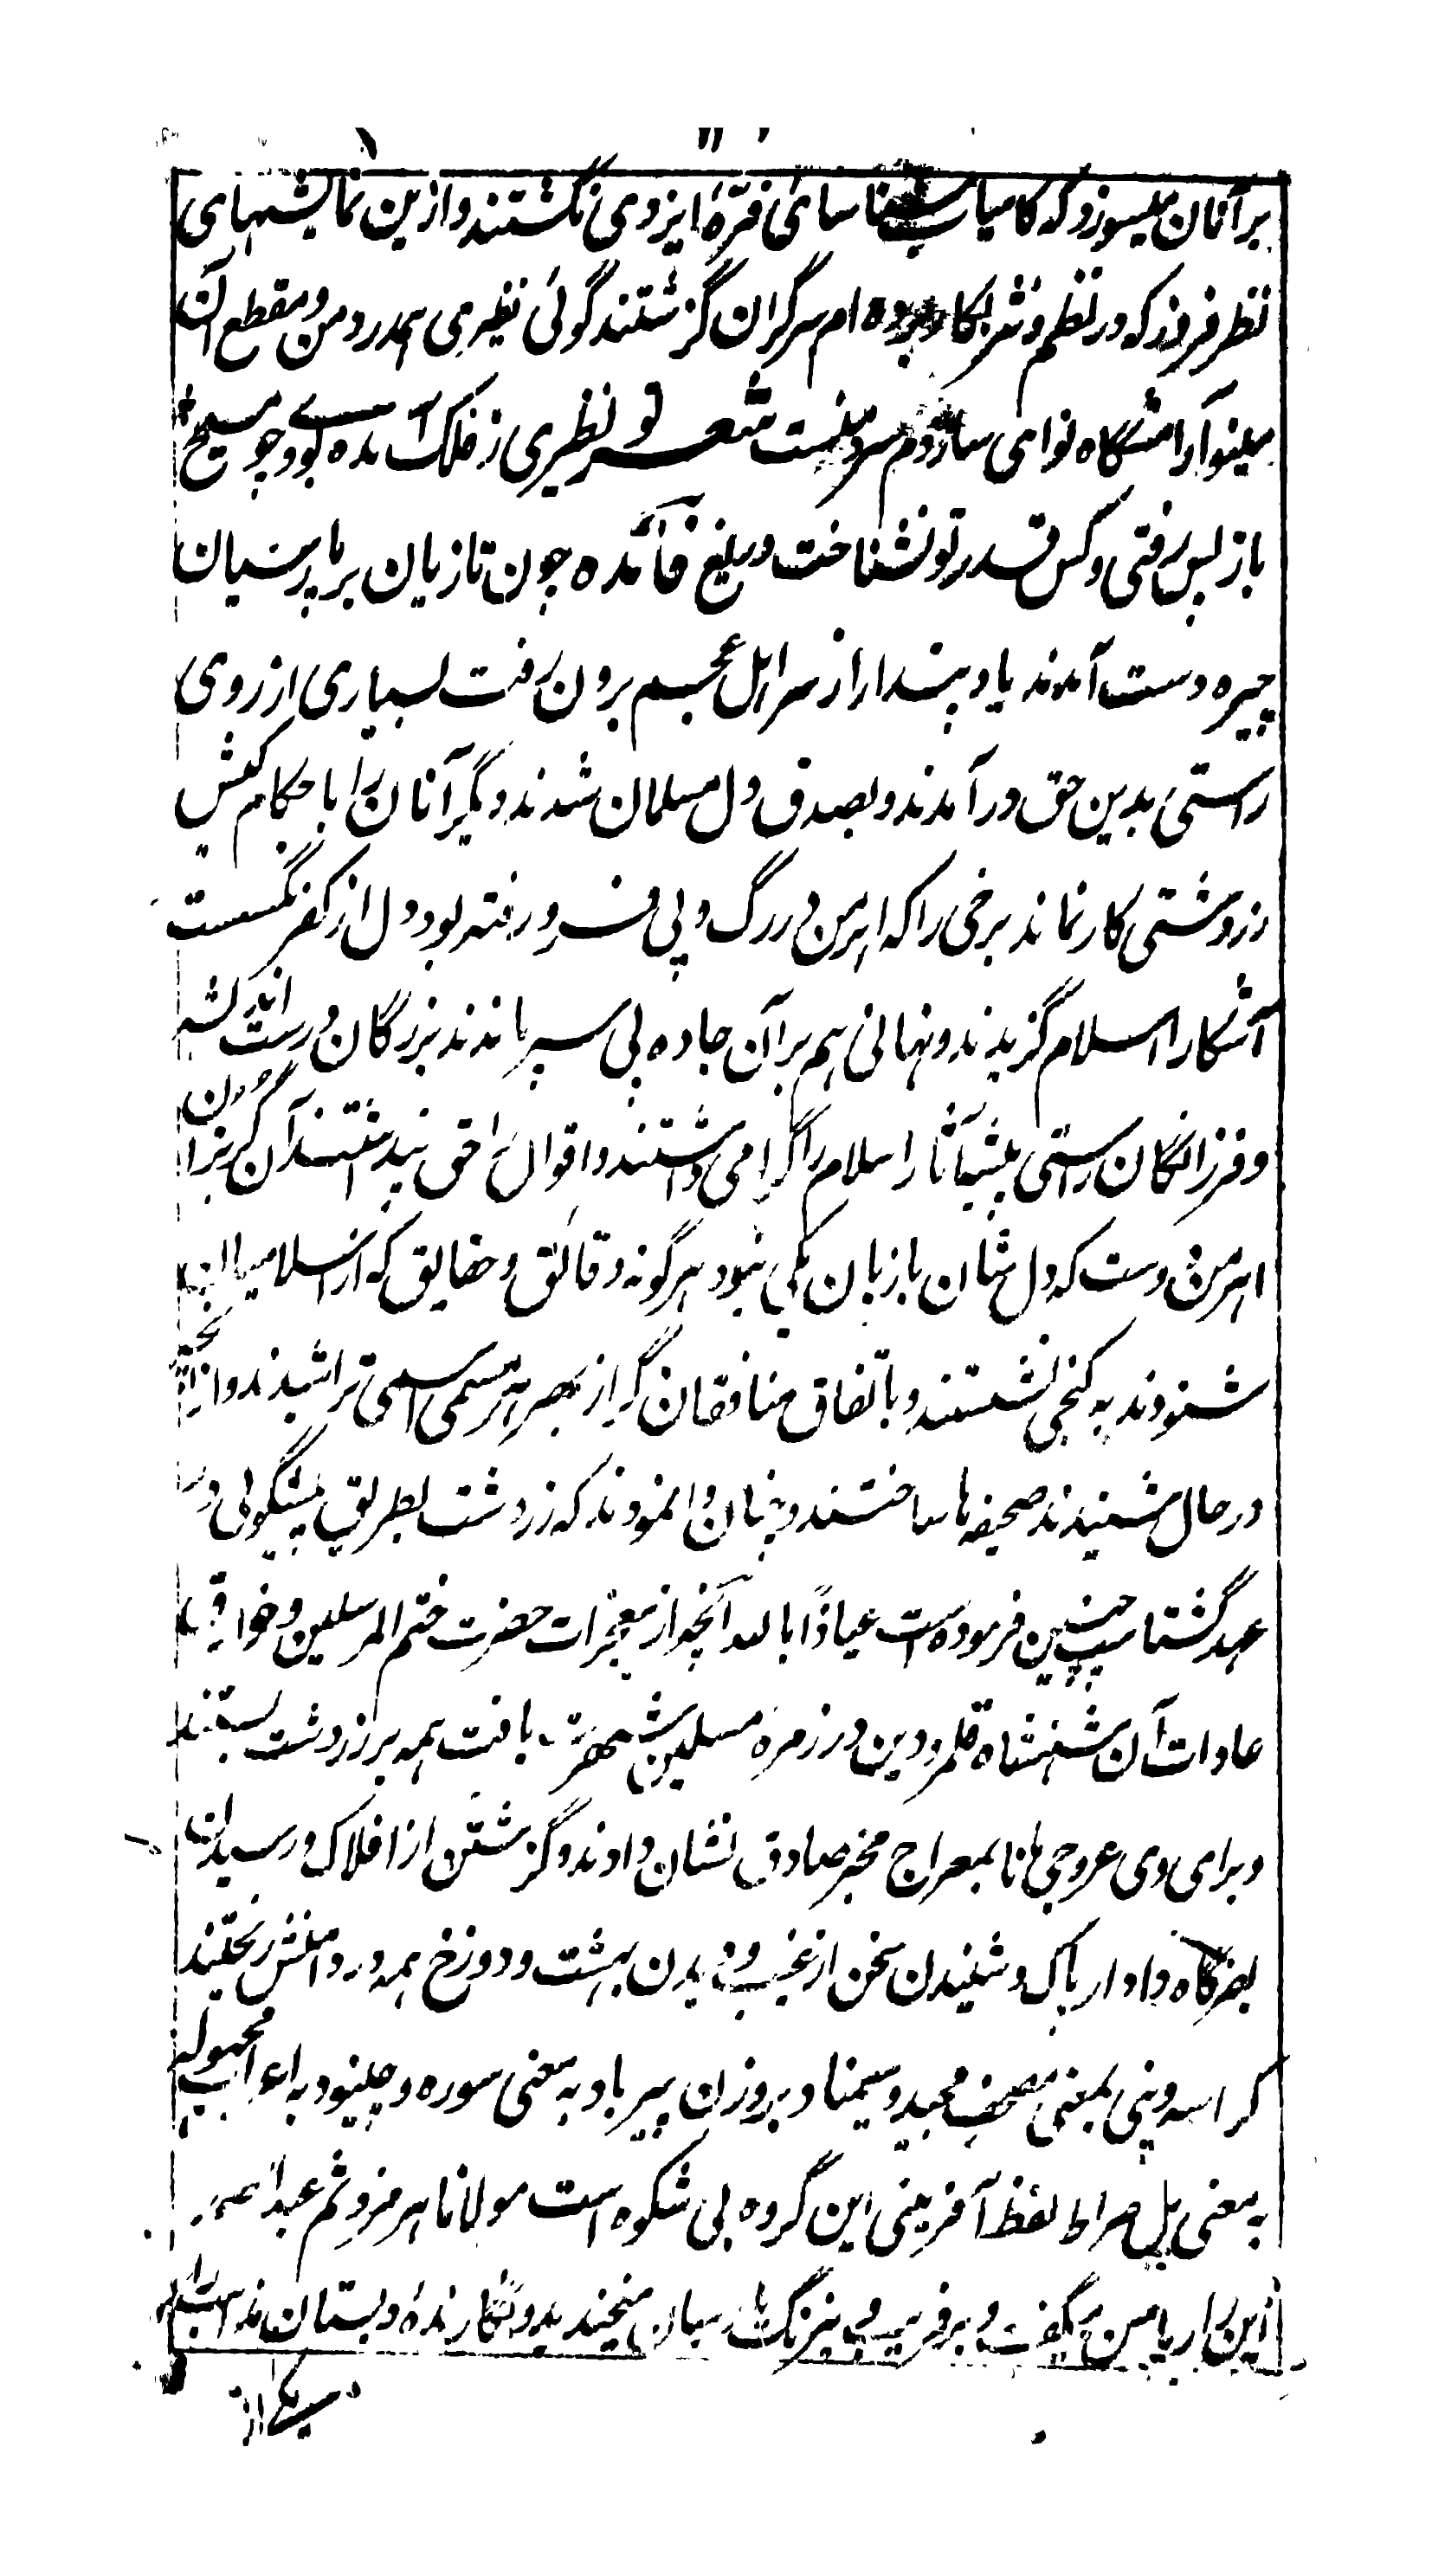 بر آنان میسوزد که کامیاب شناسائی فرّهٔ ایزدی نگشتند و ازین نمایشهای
نظر فروز که در نظم و نثر بکار برده ام سرگران گزشتند گوئی نظیری همدرد من و مقطع آن
مینو آرامشگاه نوای ساز دم سرد منست شعر تو نظیری ز فلک آمده بودی چو مسیح
باز پس رفتی و کس قدر تو نشناخت دریغ فائده چون تازیان بر پارسیان
چیره دست آمدند باد پندار از سر اہل عجم برون رفت بسیاری از روی
راستی بدین حق در آمدند و بصدق دل مسلمان شدند دیگر آنان را با حکام کیش
زردشتی کار نماند برخی را که اہرمن در رگ و پی فرو رفته بود دل از کفر نگسست
آشکارا اسلام گزیدند و نہانی ہم بر آن جاده پی سپر ماندند بزرگان درست اندیشه
و فرزانگان راستی پیشه آثار اسلام را گرامی داشتند و اقوال را حق پنداشتند آن گربزان
اہرمن دوست که دل شان با زبان یکی نبود ہر گونه دقائق و حقایق که از اسلامیان
شنودند به کنجی نشستند و باتفاق منافقان دگر از بہر ہر مسمی اسمی تراشیدند و از آنچه
در حال شنیدند صحیفه ها ساختند و چنان وانمودند که زردشت بطریق پیشگوئی در
عہد گشتاسپ چنین فرموده است عیاذًا بالله آنچه از معجزات حضرت ختم المرسلین و خوارق
عادات آن شہنشاه قلمرو دین در زمره مسلمین شہرت یافت ہمه بر زردشت بستند
و برای وی عروجی مانا بمعراج مخبر صادق نشان دادند و گزشتن از افلاک و رسیدن
بدرگاه دادار پاک و شنیدن سخن از غیب و دیدن بہشت و دوزخ ہمه در دامنش ریختند
کراسه و نپی بمعنی مصحف مجید و سیمناد بروزن پیرباد به معنی سوره و چینود به اعراب مجہوله
به معنی پل صراط لفظ آفرینی این گروه بی شکوه است مولانا ہرمزد ثم عبد الصمد
این راز با من میگفت و بر فریب و نیرنگ پارسیان میخندید و نگارندهٔ دبستان مذاہب
یکی از